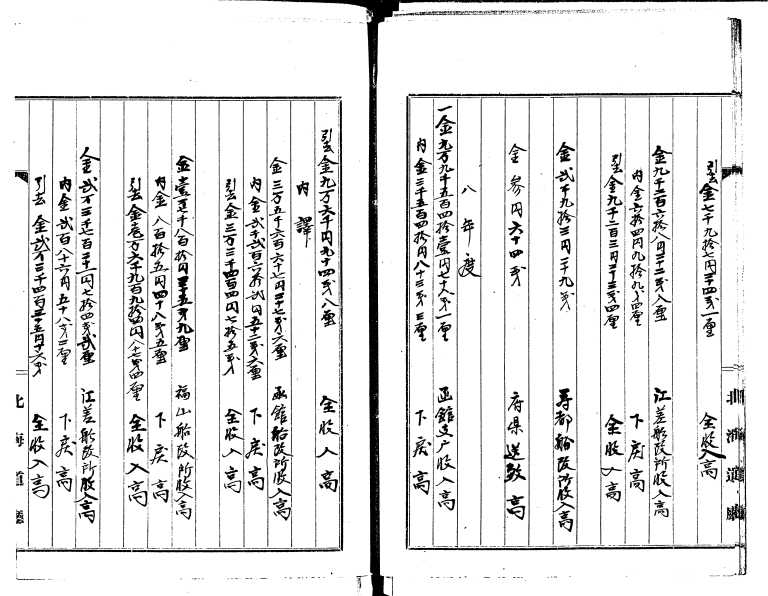 引去金七千九拾七円二十四銭一厘 全収入高
金九千二百六拾八円三十二銭八厘 江差船改所収入高
内金六拾四円九拾九銭四厘 下戻高
引去金九千二百三円三十三銭四厘 全収入高
金弐千九拾三円二十九銭 寿都船改所収入高
金参円六十四銭 府県送致高
八年度
一金九万九千五百四拾壹円七十八銭一厘 函館支庁収入高
内金三千五百四拾円八十三銭三厘 下戻高
北海道廳
引去金九万六千円九十四銭八厘 全収入高
内譯
金三万五千六百六十七円二十七銭六厘 函館船改所収入高
内金弐千弐百六拾弐円五十二銭六厘 下戻高
引去金三万三千四百四円七拾五銭 全収入高
金壹万千八百拾円三十五銭九厘 福山船改所収入高
内金八百拾五円四十八銭五厘 下戻高
引去金壱万六千九百九拾四円八十七銭四厘 全収入高
金弐万三千七百二十一円七拾四銭弐厘 江差船改所収入高
内金弐百八十六円五十八銭二厘 下戻高
引去金弐万三千四百三十五円十六銭 全収入高
北海道廳